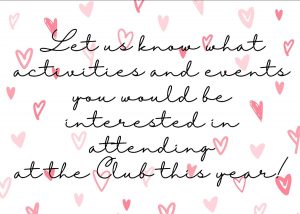 Let us know what
activities and events
you would be
interested in
attending
at the Club this year!